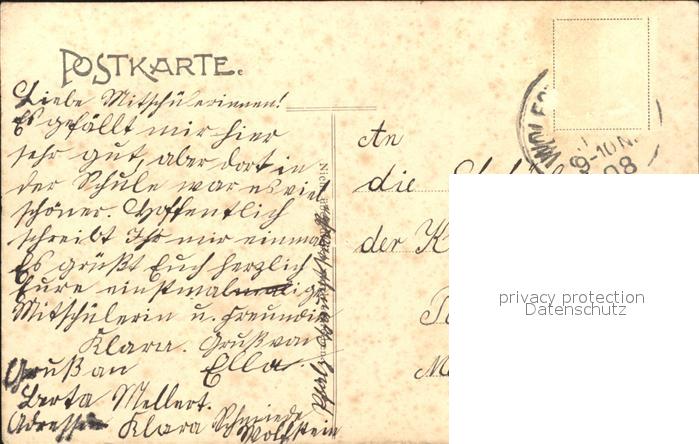 POSTKARTE.
Liebe Mitschülerinnen!
Es gefällt mir hier
sehr gut, aber dort in
der Schule war es viel
schöner. Hoffentlich
schreibt Ihr mir einmal
Es grüßt Euch herzlich
Eure einstmalige
Mitschülerin u. Freundin
Klara. Gruß von
Gruß an Ella.
Berta Mellert.
Adresse Klara Schmiede
Wolfstein
Pfalz
An
die
der K
9-10 N.
08
privacy protection
Datenschutz